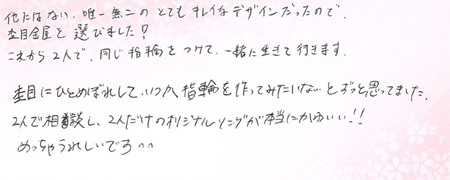 他にはない、唯一無二のとてもキレイなデザインだったので、
杢目金屋を選びました!
これから2人で、同じ指輪をつけて、一緒に生きて行きます。
杢目にひとめぼれして、いつか指輪を作ってみたいな〜とずっと思ってました。
2人で相談し、2人だけのオリジナルリングが本当にかわいい!!
めっちゃうれしいです^^